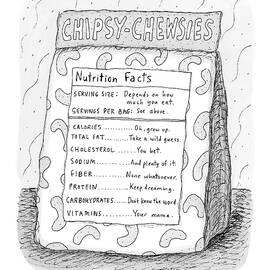 CHIPSY-CHEWSIES
Nutrition Facts
SERVING SIZE: Depends on how
much you eat.
SERVINGS PER BAG: See above.
CALORIES............Oh, grow up.
TOTAL FAT.......Take a wild guess.
CHOLESTEROL.......You bet.
SODIUM..........And plenty of it.
FIBER............None whatsoever.
PROTEIN.........Keep dreaming.
CARBOHYDRATES....Don't know the word.
VITAMINS..........Your mama.